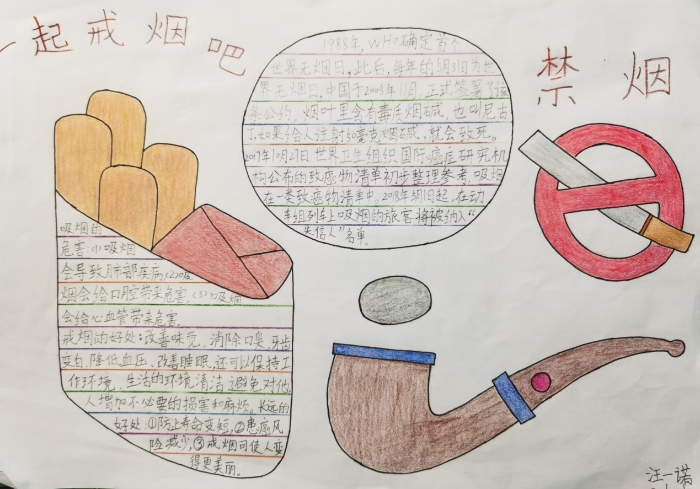 一起戒烟吧
禁烟
1988年,WHO确定首个
世界无烟日,此后,每年的5月31日为世
界无烟日,中国于2003年11月,正式签署了该
公约,烟叶里含有毒质烟碱,也叫尼古
丁,如果给人注射50毫克烟碱,就会致死。
2017年10月27日世界卫生组织国际癌症研究机
构公布的致癌物清单初步整理参考,吸烟
在一类致癌物清单中。2018年5月1日起,在动
车组列车上吸烟的旅客将被纳入“
失信人”名单.
吸烟的
危害:(1)吸烟
会导致肺部疾病,(2)吸
烟会给口腔带来危害.(3)吸烟
会给心血管带来危害.
戒烟的好处:改善味觉,消除口臭,牙齿
变白,降低血压,改善睡眠,还可以保持工
作环境、生活的环境清洁,避免对他
人增加不必要的损害和麻烦。长远的
好处:①防止寿命变短,②患癌风
险减少,③戒烟可使人变
得更美丽。
汪一诺